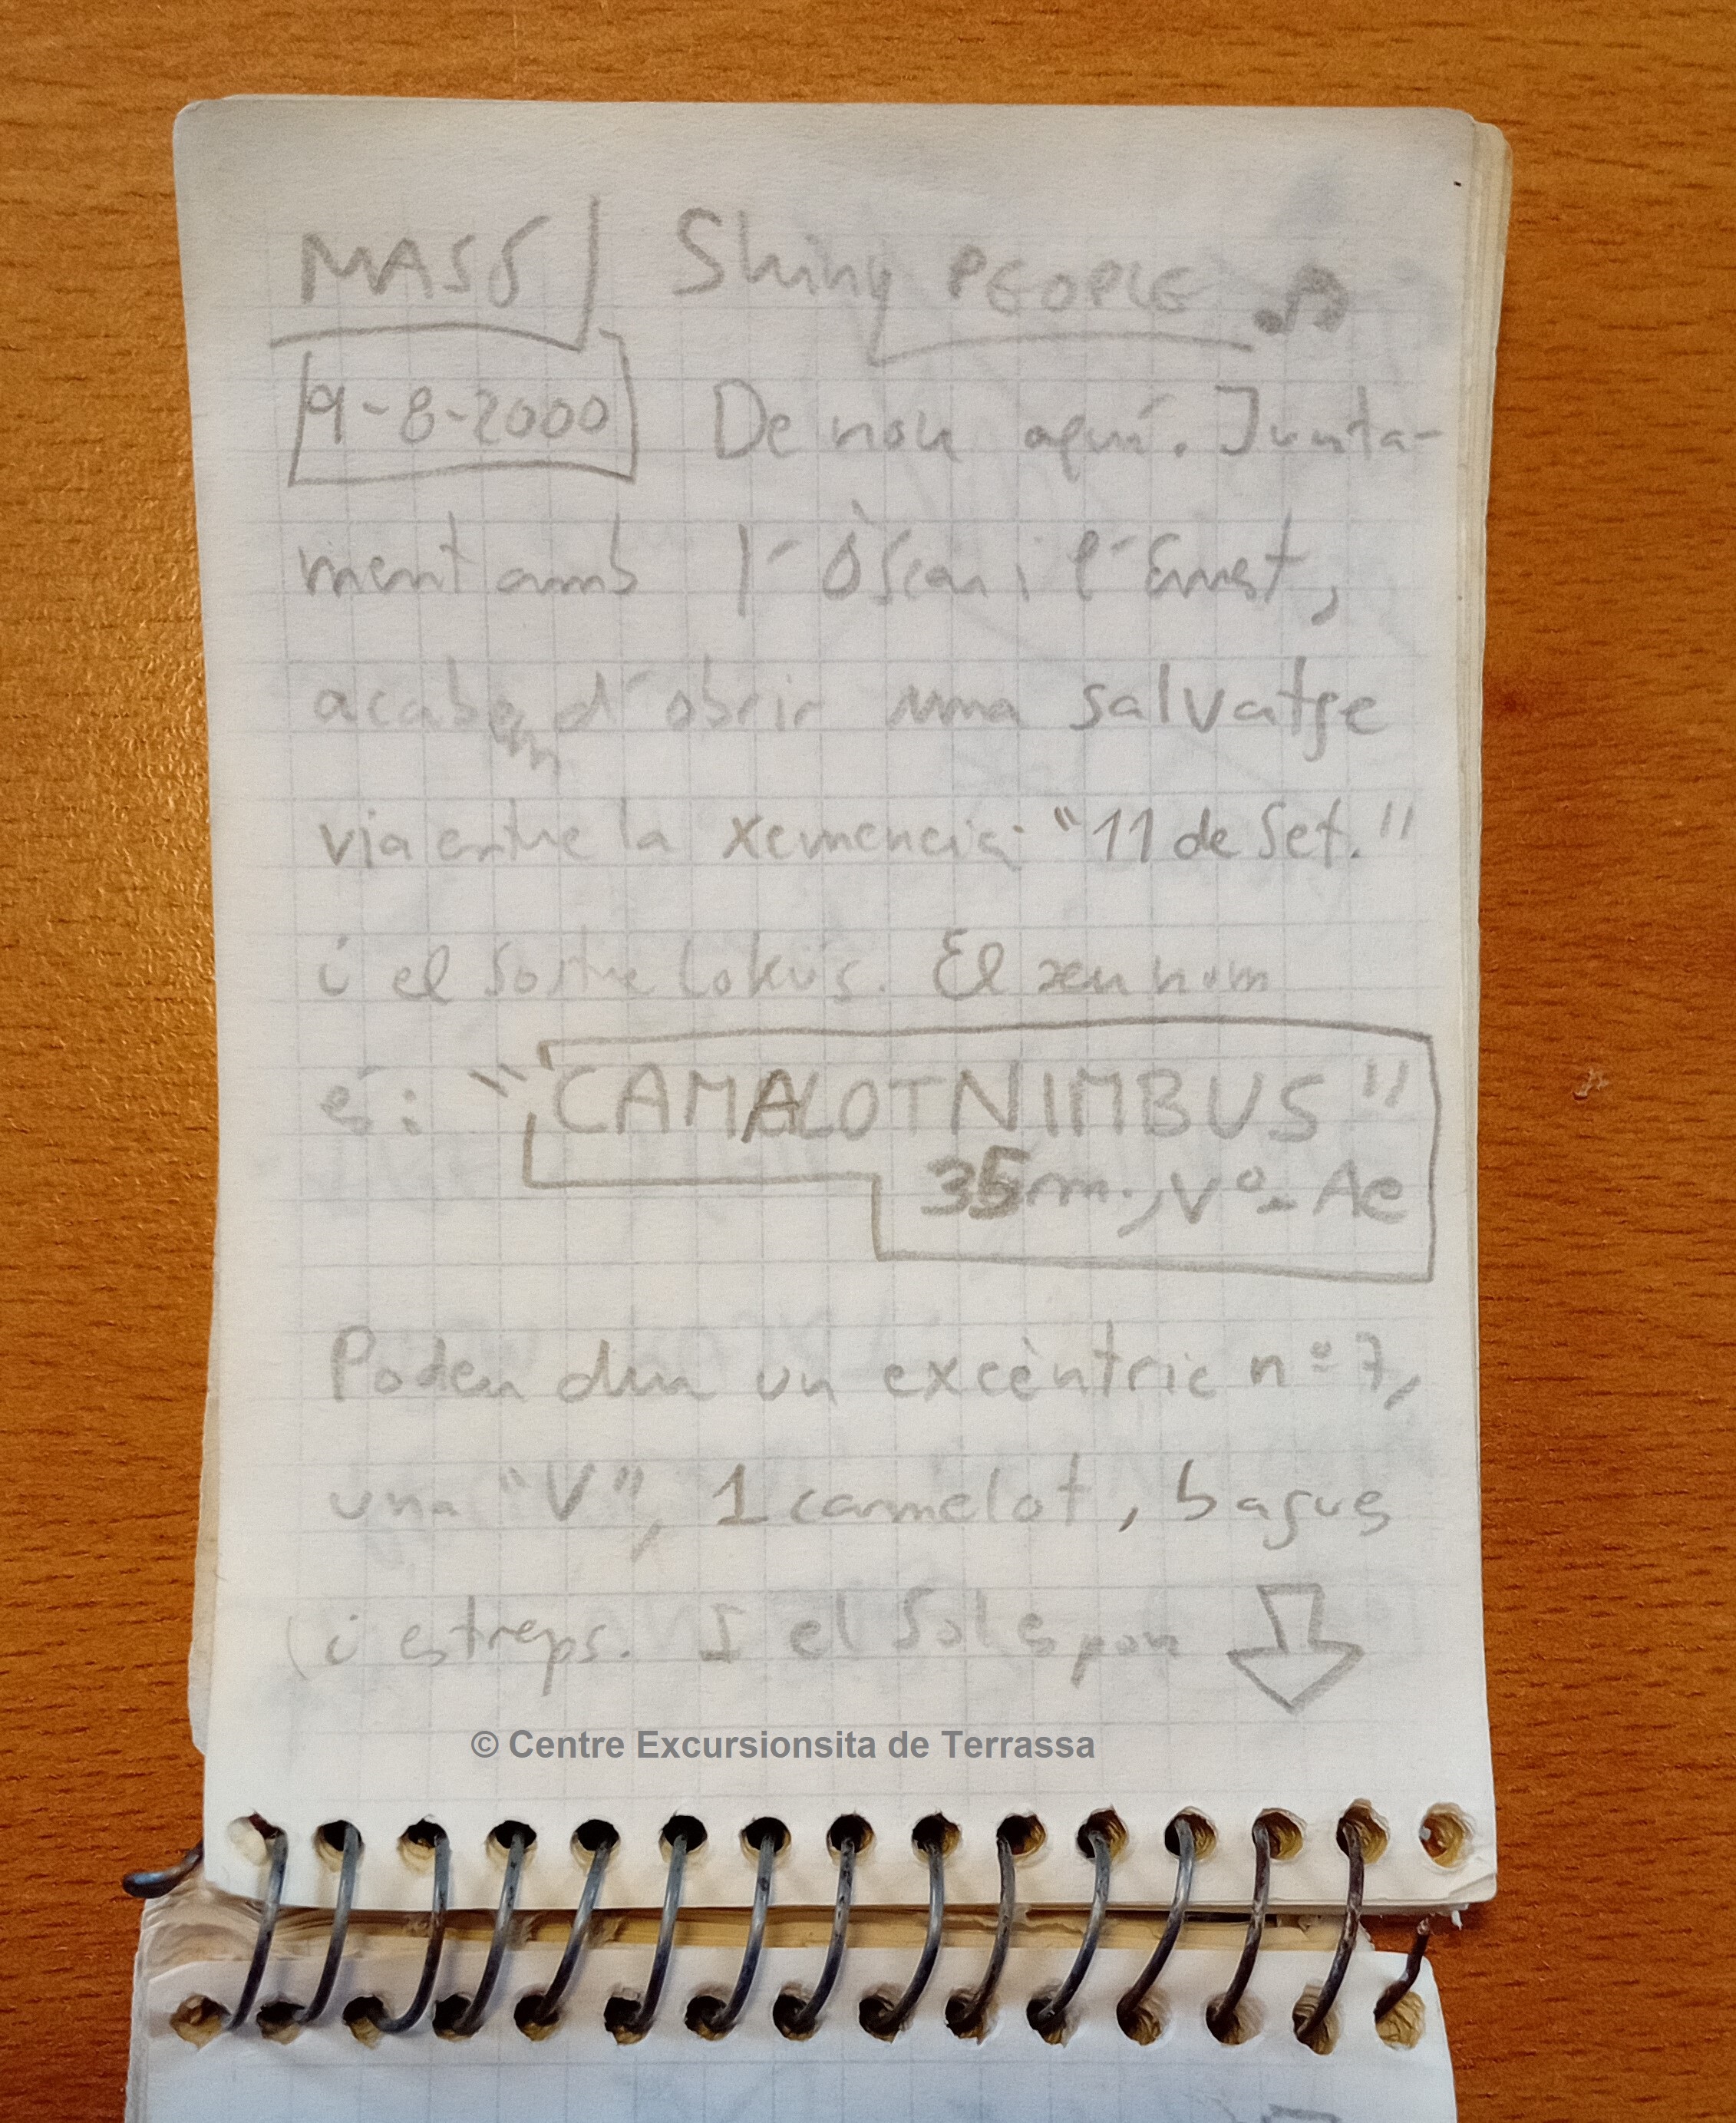 MASS Shiny PEOPLE
9-8-2000 De nou aquí. Junta-
ment amb l'Òscar i l'Ernest,
acabem d'obrir una salvatge
via entre la xemeneia "11 de Set."
i el Sostre Lokus. El seu nom
és: "CAMALOT NIMBUS"
35m., Vº-Ae
Poden dur un excèntric nº 7,
una "V", 1 camelot, bagues
i estreps. I el Sol es pon
© Centre Excursionsita de Terrassa